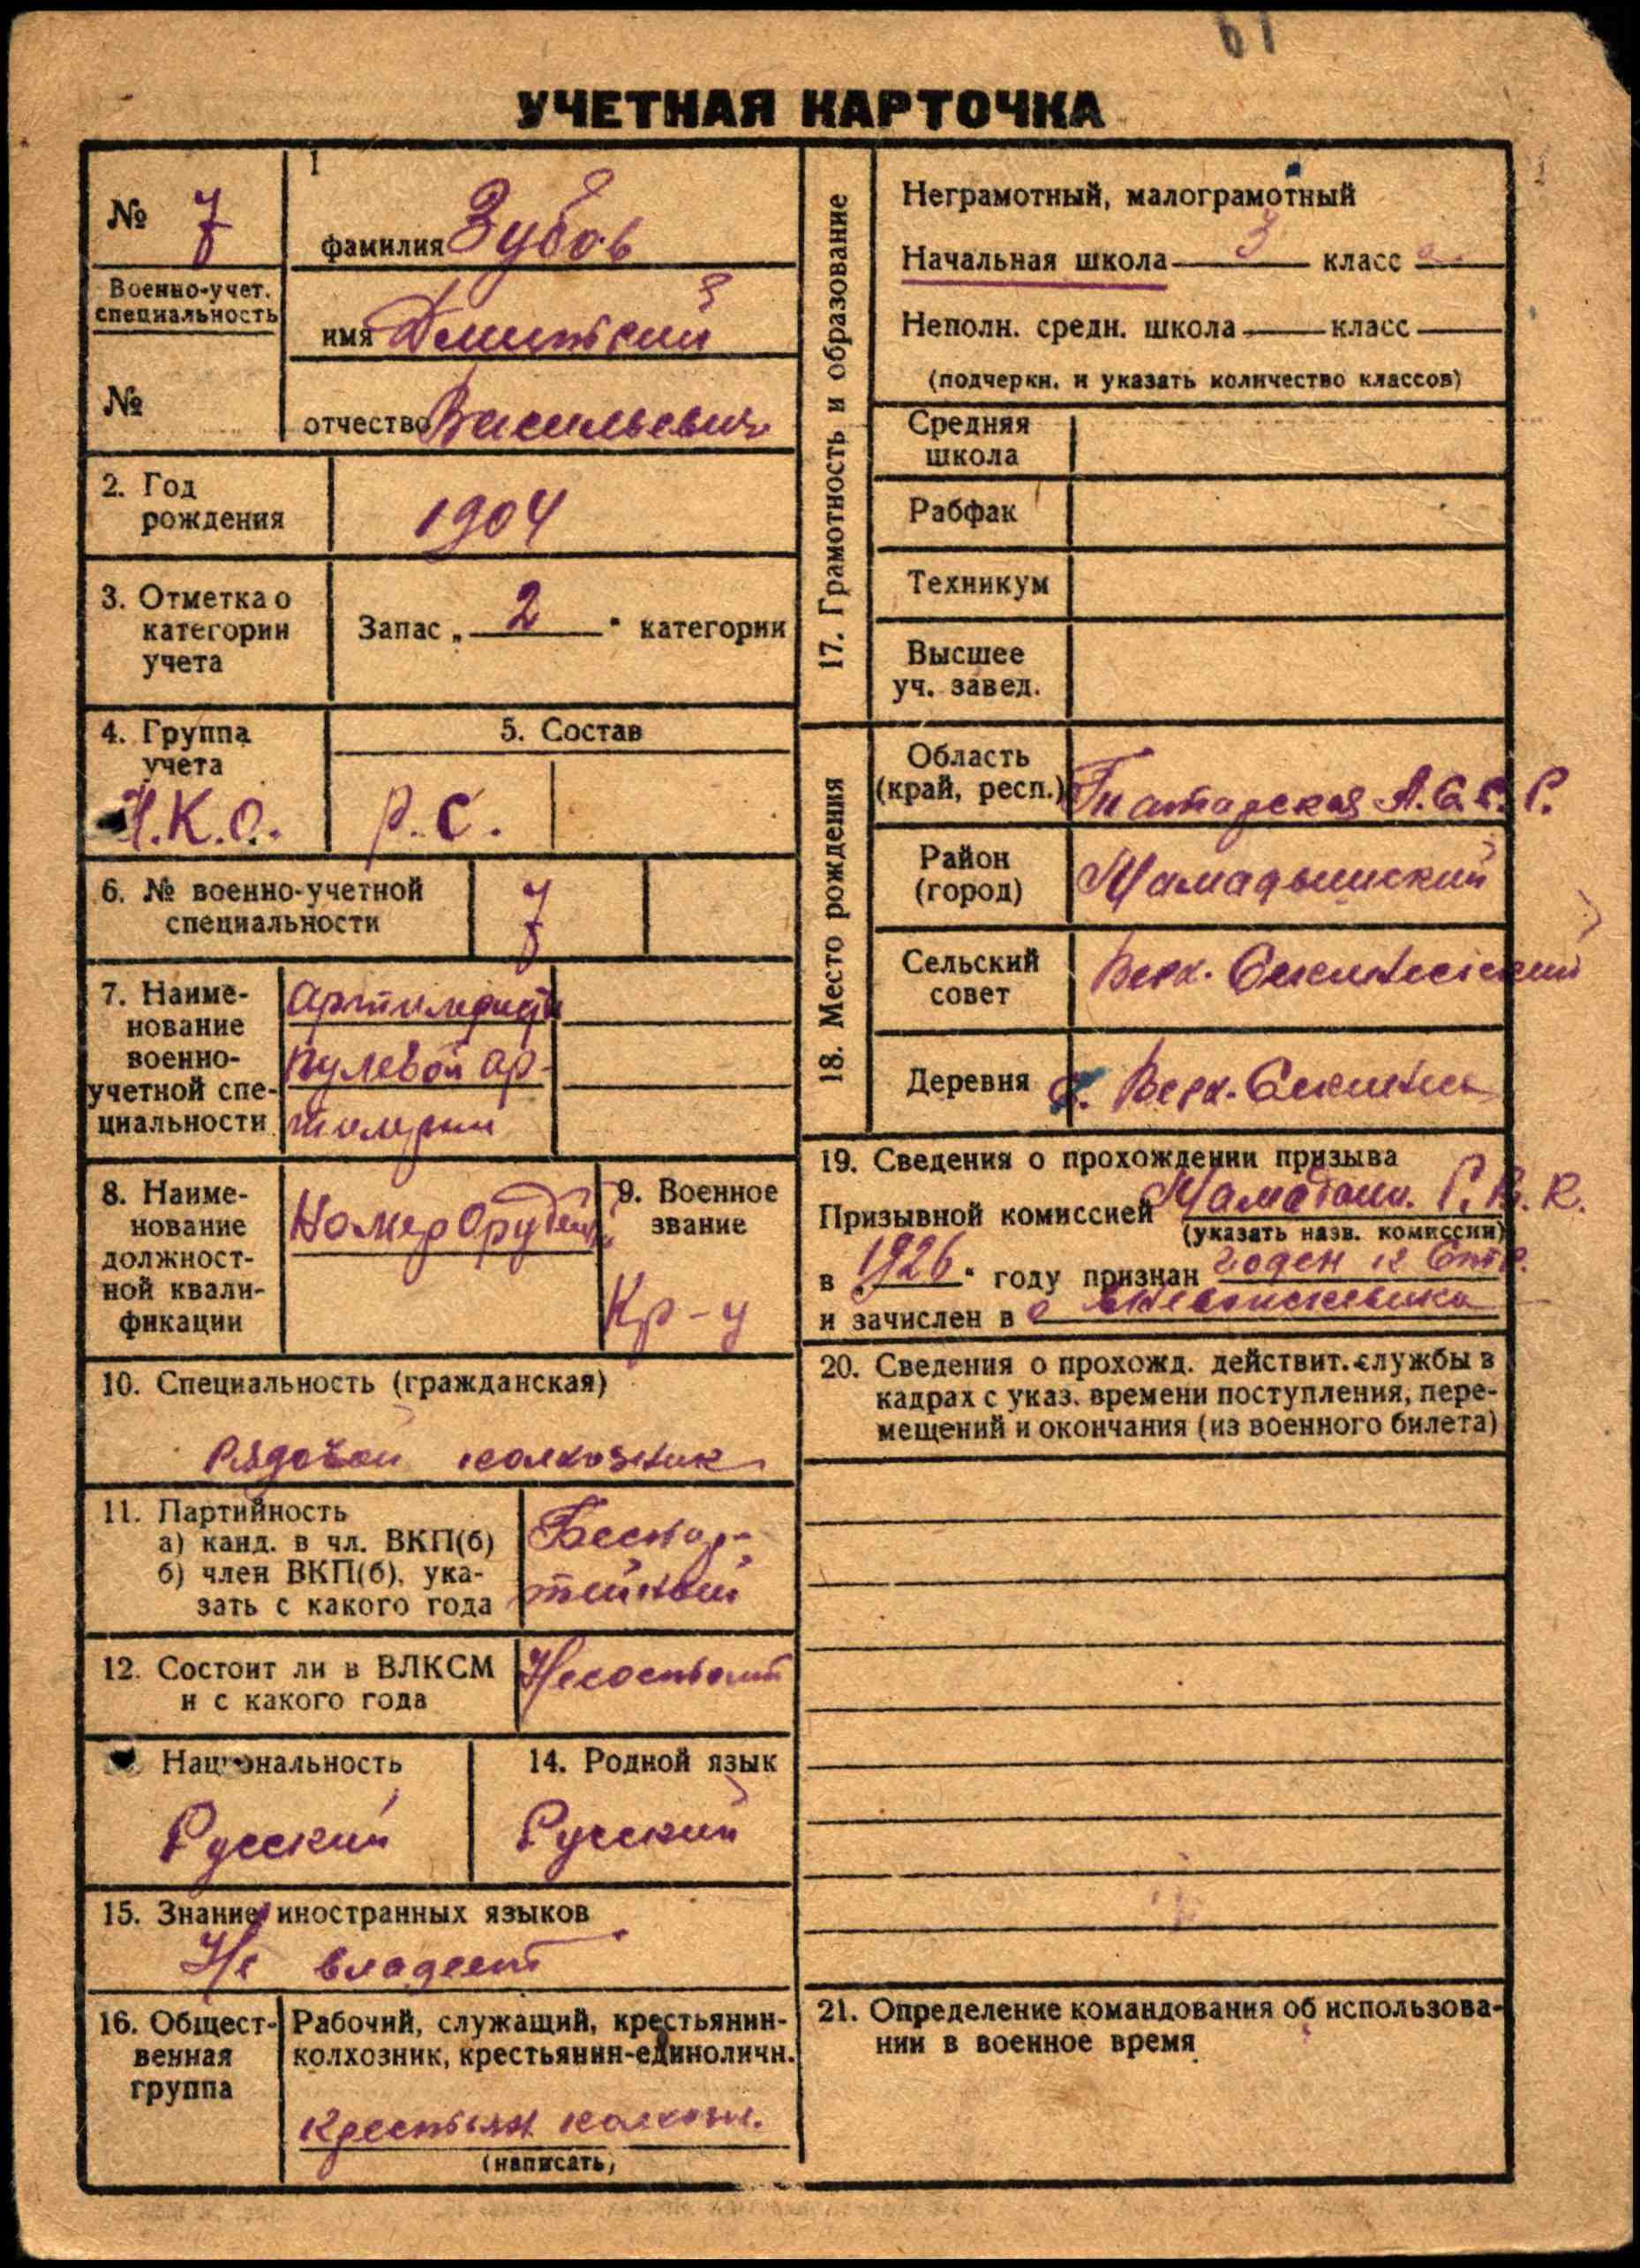 61
УЧЕТНАЯ КАРТОЧКА
№ 7
1
фамилия Зубов
Военно-учет.
специальность
имя Дмитрий
№
отчество Васильевич
2. Год
рождения
1904
3. Отметка о
категории
учета
Запас „ 2 " категории
4. Группа
учета
Н.К.О.
5. Состав
Р.С.
6. № военно-учетной
специальности
7
7. Наиме-
нование
военно-
учетной спе-
циальности
пулевой ар-
тилерии
8. Наиме-
нование
должност-
ной квали-
фикации
Номер Орудейн
9. Военное
звание
Кр-ц
10. Специальность (гражданская)
Рядовой колхозник
11. Партийность
а) канд. в чл. ВКП(б)
б) член ВКП(б), ука-
зать с какого года
Беспар-
тийный
12. Состоит ли в ВЛКСМ
и с какого года
Несостоит
Национальность
Русский
14. Родной язык
Русский
15. Знание иностранных языков
Не владеет
16. Общест-
венная
группа
Рабочий, служащий, крестьянин-
колхозник, крестьянин-единоличн.
Крестьян колхозн.
(написать)
17. Грамотность и образование
Неграмотный, малограмотный
Начальная школа 3 класс а
Неполн. средн. школа класс
(подчеркн. и указать количество классов)
Средняя
школа
Рабфак
Техникум
Высшее
уч. завед.
18. Место рождения
Область
(край, респ.)
Татарская А.С.С.Р.
Район
(город)
Мамадышский
Сельский
совет
Верх.
Деревня
Верх.
19. Сведения о прохождении призыва
Призывной комиссией Мамадыш. Р.В.К.
(указать назв. комиссии)
в „1926" году признан годен к
и зачислен в
20. Сведения о прохожд. действит. службы в
кадрах с указ. времени поступления, пере-
мещений и окончания (из военного билета)
21. Определение командования об использова-
нии в военное время